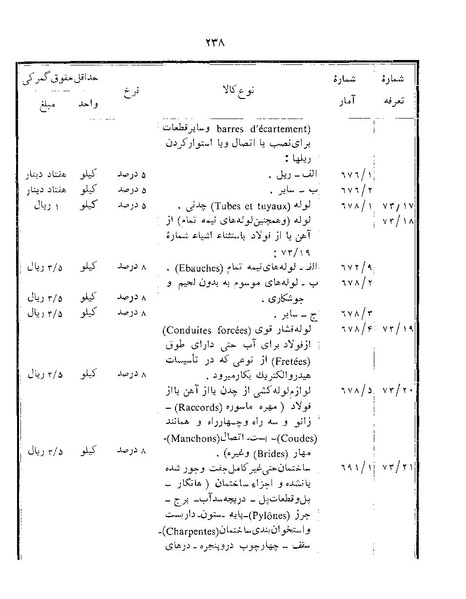 ۲۳۸
شماره تعرفه شماره آمار نوع کالا نرخ حداقل حقوق گمرکی واحد مبلغ
(barres d'écartement) و سایر قطعات
برای نصب یا اتصال و یا استوار کردن
ریلها:
۶۷۶/۱ الف ـ ریل . ۵ درصد کیلو هفتاد دینار
۶۷۶/۲ ب ـ سایر . ۵ درصد کیلو هفتاد دینار
۷۳/۱۷ ۶۷۸/۱ لوله (Tubes et tuyaux) چدنی . ۵ درصد کیلو ۱ ریال
۷۳/۱۸ لوله (و همچنین لوله‌های نیمه تمام) از
آهن یا از فولاد باستثناء اشیاء شمارهٔ
۷۳/۱۹ :
۶۷۲/۹ الف ـ لوله‌های نیمه تمام (Ebauches) . ۸ درصد کیلو ۳/۵ ریال
۶۷۸/۲ ب ـ لوله‌های موسوم به بدون لحیم و
جوشکاری . ۸ درصد کیلو ۳/۵ ریال
۶۷۸/۳ ج ـ سایر . ۸ درصد کیلو ۳/۵ ریال
۷۳/۱۹ ۶۷۸/۴ لوله فشار قوی (Conduites forcées)
از فولاد برای آب حتی دارای طوق
(Fretées) از نوعی که در تأسیسات
هیدروالکتریک بکار میرود . ۸ درصد کیلو ۳/۵ ریال
۷۳/۲۰ ۶۷۸/۵ لوازم لوله کشی از چدن یا از آهن یا از
فولاد ( مهره ماسوره (Raccords) ـ
زانو و سه راه و چهارراه و همانند
(Coudes) ـ بست اتصال (Manchons) ـ
مهار (Brides) و غیره) . ۸ درصد کیلو ۳/۵ ریال
۷۳/۲۱ ۶۹۱/۱ ساختمان حتی غیر کامل جفت و جور شده
یا نشده و اجزاء ساختمان ( هانگار ـ
پل و قطعات پل ـ دریچه سد آب ـ برج ـ
جرز (Pylônes) ـ پایه ـ ستون ـ داربست
و استخوان بندی ساختمان (Charpentes) ـ
سقف ـ چهارچوب در و پنجره ـ درهای